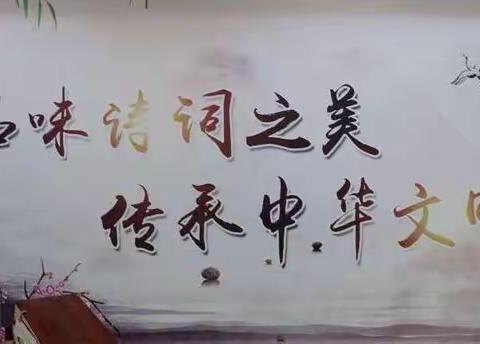 品味诗词之美
传承中华文明